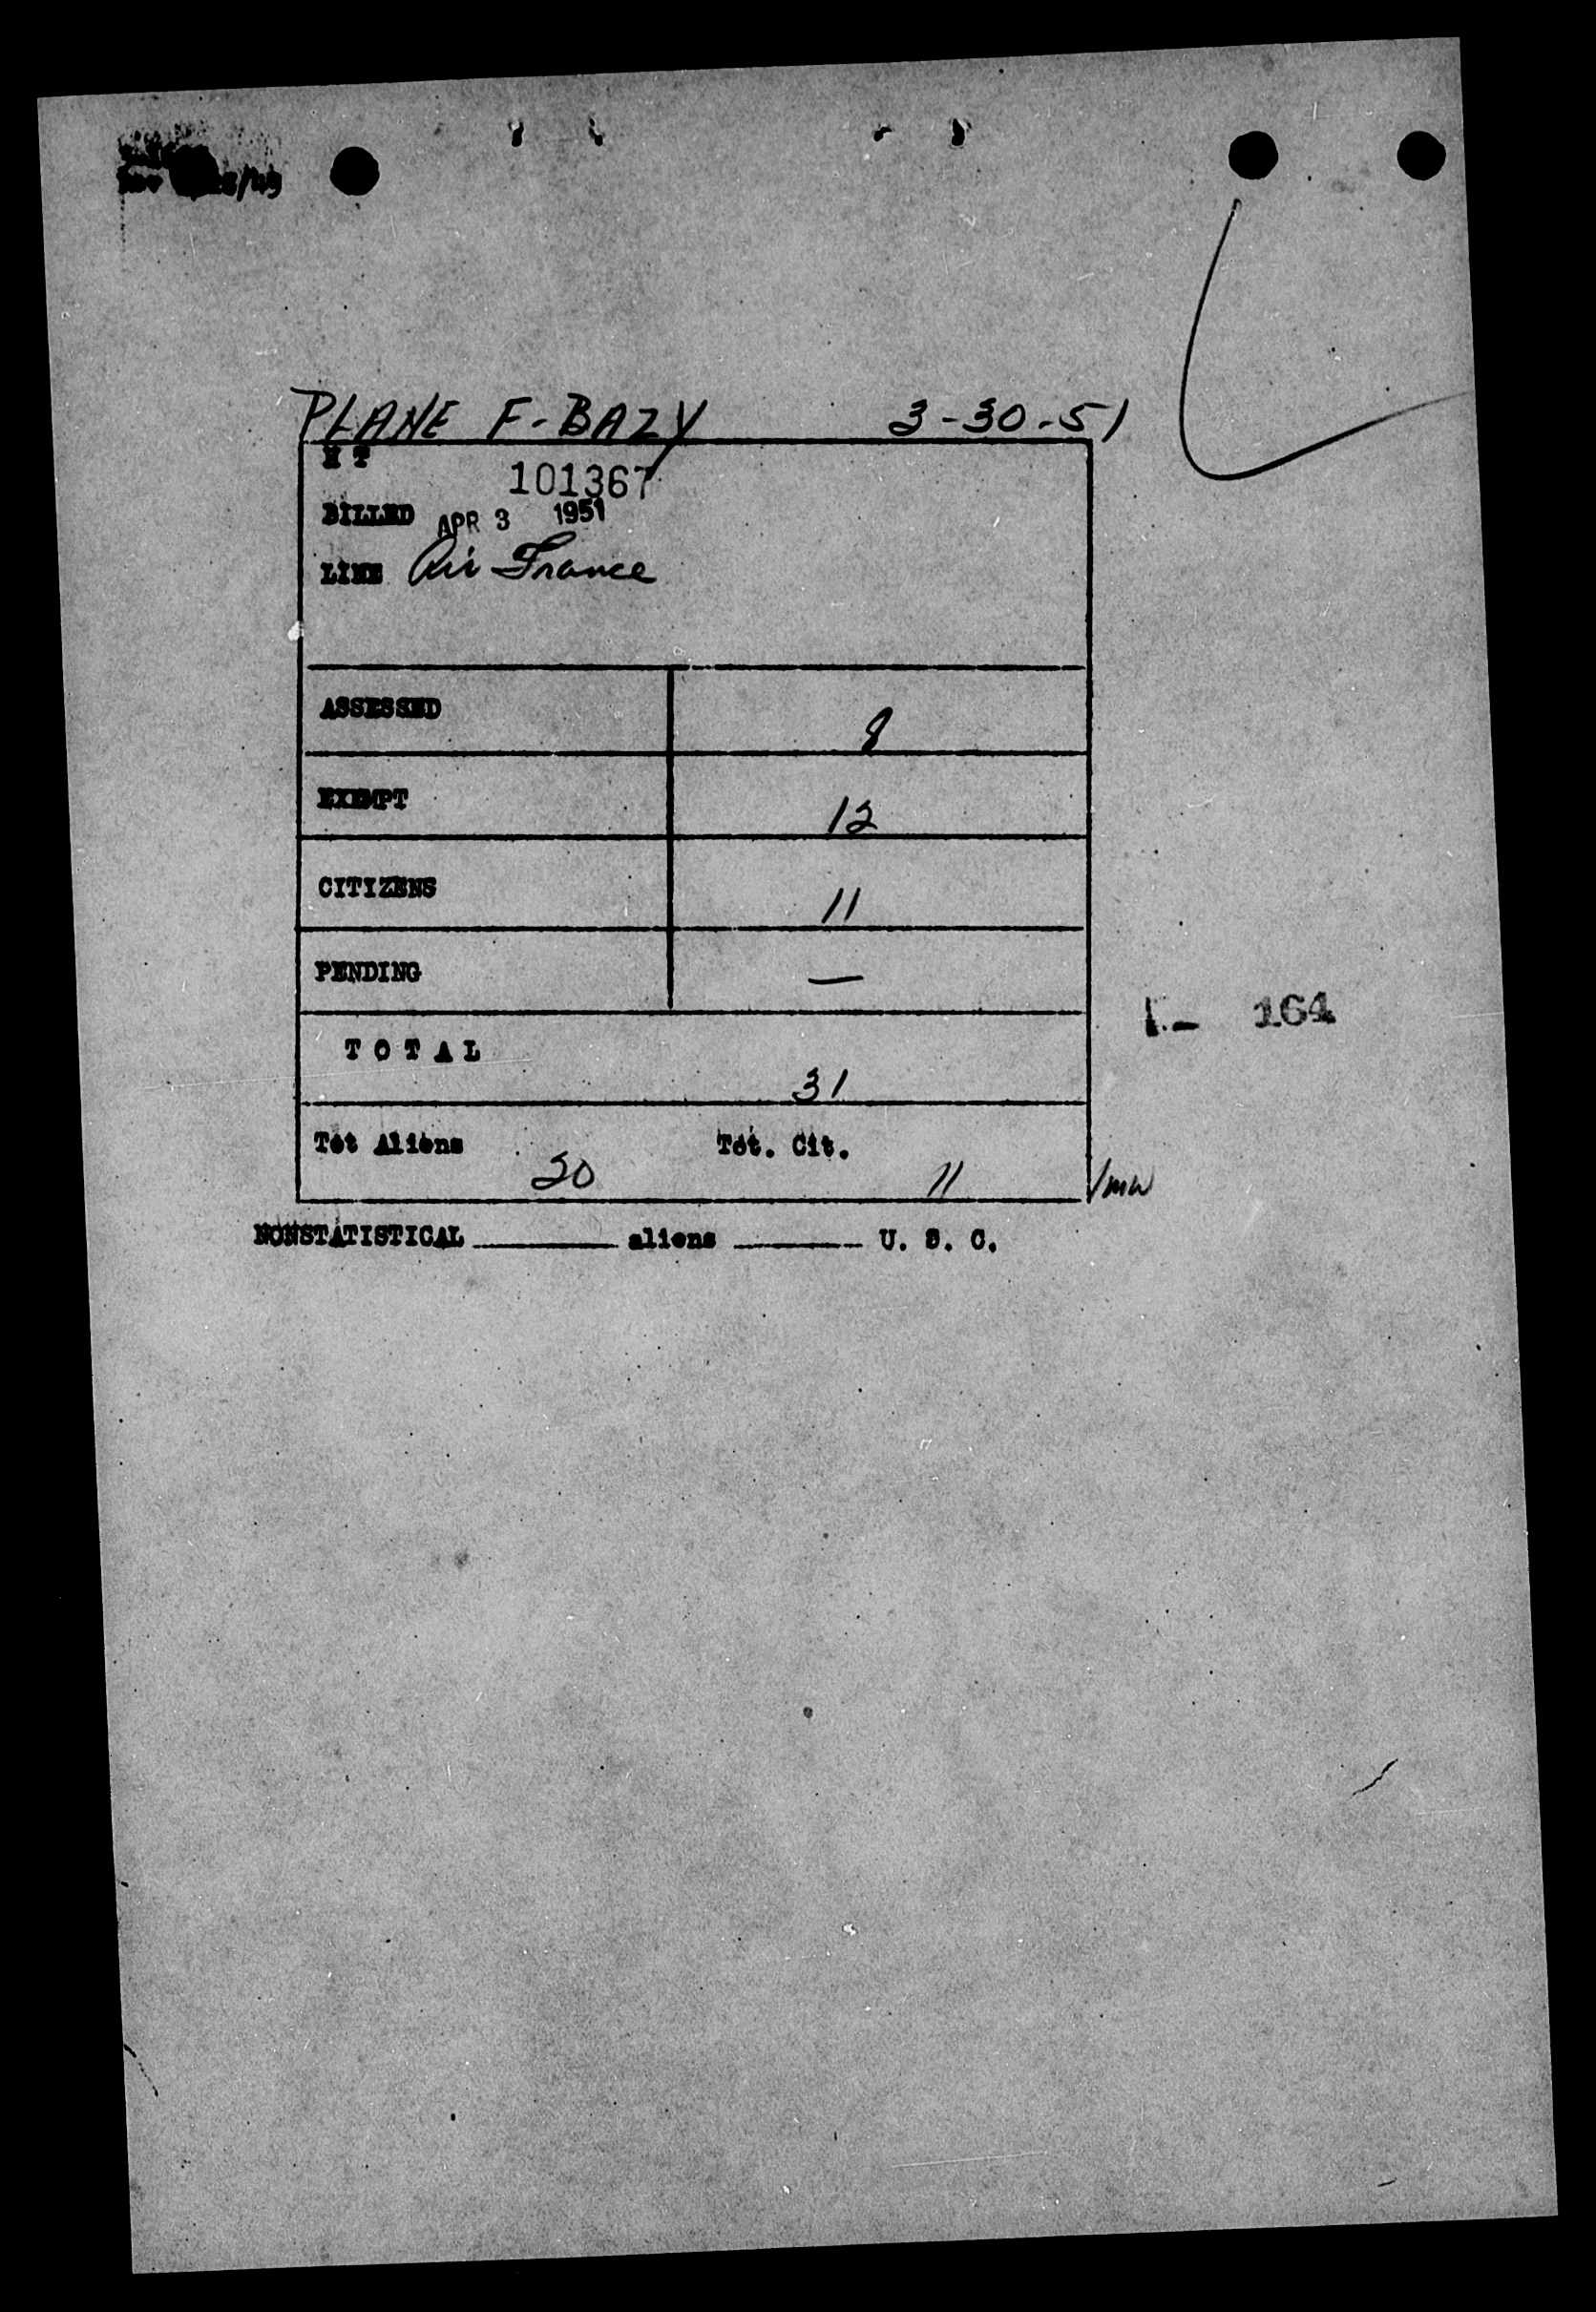 PLANE F-BAZY 3-30-51
101367
BILLED APR 3 1951
LINE Air France
ASSESSED 8
EXEMPT 12
CITIZENS 11
PENDING —
TOTAL 31
1.- 164
Tot Aliens 20 Tot. Cit. 11 /mw
NONSTATISTICAL ______ aliens ______ U. S. C.